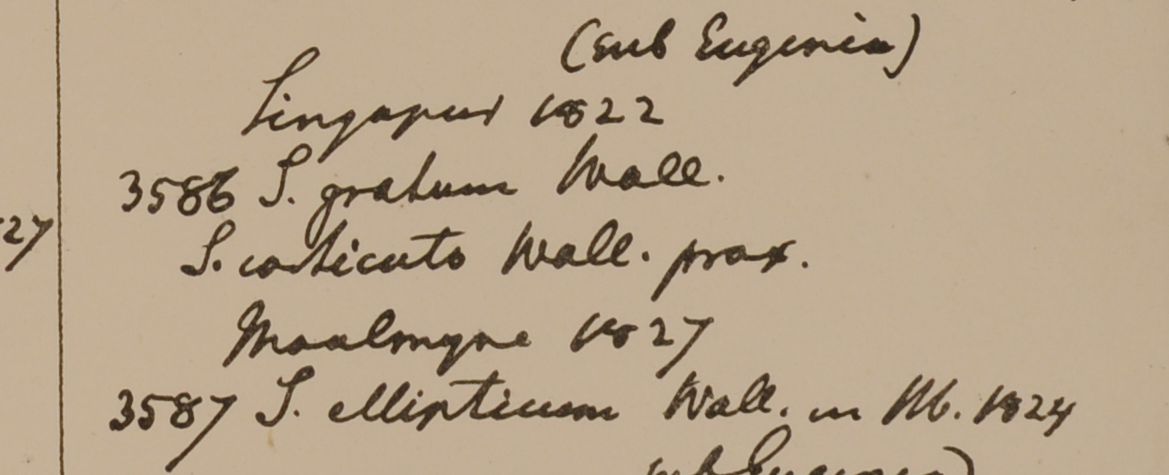 (sub Eugenia)
Singapur 1822
3586 S. gratum Wall.
27
S. corticato Wall. prox.
Moalmyne 1827
3587 S. ellipticum Wall. in Hb. 1824
sub Eugenia)